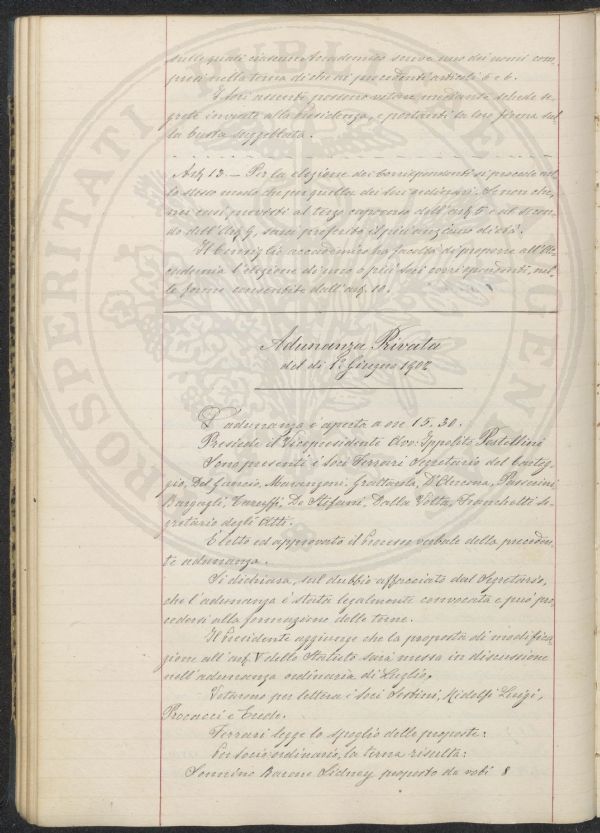 sulle quali ciascun Accademico scrive uno dei nomi com-
presi nella terna di che ai precedenti articoli 6 e 6.
I soci assenti possono votare mediante schede se-
grete inviate alla Presidenza, e portanti la loro firma sul-
la busta suggellata.
Art. 13. — Per la elezione dei Corrispondenti si procede nel-
lo stesso modo che per quella dei soci ordinari. Se non che,
nei casi previsti al terzo capoverso dell'art. 5 e al secon-
do dell'Art. 9, sarà preferito il più anziano di età.
Il Consiglio accademico ha facoltà di proporre all'Ac-
cademia l'elezione di uno o più soci corrispondenti, nel-
le forme consentite dall'art. 10.
Adunanza Privata
del dì 1º Giugno 1902
L'adunanza è aperta a ore 15.30.
Presiede il Vicepresidente Avv. Ippolito Pestellini
Sono presenti i soci Ferrari Segretario del Carteg-
gio, Del Guercio, Marangoni, Grattarola, D'Ancona, Passerini
Bargagli, Caruffi, De Stefani, Dalla Volta, Franchetti Se-
gretario degli Atti.
È letto ed approvato il Processo verbale della preceden-
te adunanza.
Si dichiara, sul dubbio affacciato dal Segretario,
che l'adunanza è stata legalmente convocata e può pro-
cedersi alla formazione delle terne.
Il Presidente aggiunge che la proposta di modifica-
zione all'art. V dello Statuto sarà messa in discussione
nell'adunanza ordinaria di Luglio.
Votarono per lettera i soci Sestini, Ridolfi Luigi,
Procacci e Erede.
Ferrari legge lo spoglio delle proposte:
Per socio ordinario, la terna risulta:
Sonnino Barone Sidney proposto da voti 8
PROSPERITATI PUBLICAE AUGENDAE